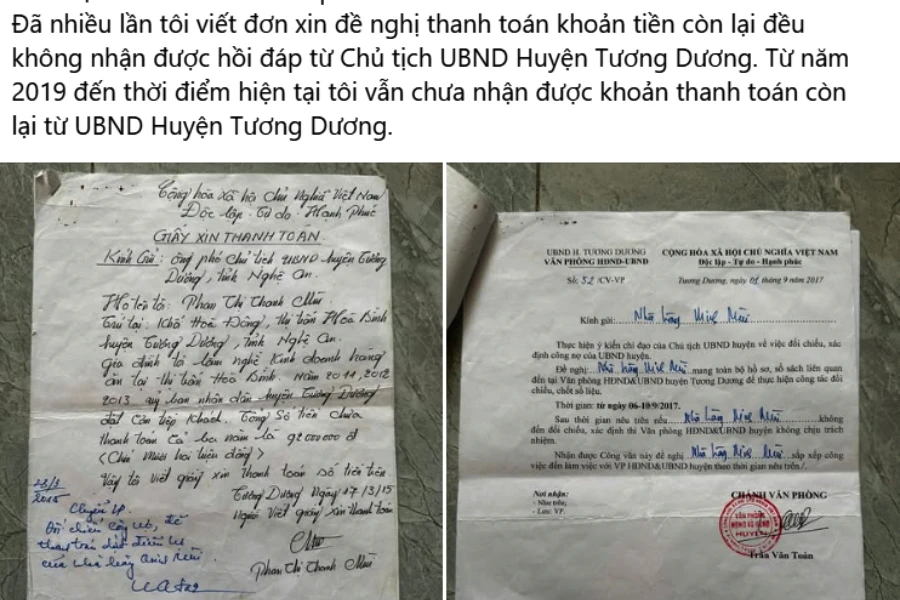 Đã nhiều lần tôi viết đơn xin đề nghị thanh toán khoản tiền còn lại đều
không nhận được hồi đáp từ Chủ tịch UBND Huyện Tương Dương. Từ năm
2019 đến thời điểm hiện tại tôi vẫn chưa nhận được khoản thanh toán còn
lại từ UBND Huyện Tương Dương.
Cộng hòa xã hội Chủ Nghĩa Việt Nam
Độc lập - Tự do - Hạnh Phúc
GIẤY XIN THANH TOÁN
Kính Gửi: ông phó chủ tịch UBND huyện Tương
Dương, tỉnh Nghệ An.
Họ tên tôi: Phan Thị Thanh Mùi
Trú tại: Khối Hoà Đông, thị trấn Hoà Bình
huyện Tương Dương, tỉnh Nghệ An.
Gia đình tôi làm nghề Kinh doanh hàng
ăn tại thị trấn Hoà Bình. Năm 2011, 2012
2013 uỷ ban nhân dân huyện Tương Dương
đặt cơm tiếp khách. Tổng số tiền chưa
thanh toán cả ba năm là 92000000 đ
(Chín mươi hai triệu đồng)
Vậy tôi viết giấy xin thanh toán số tiền trên
Tương Dương Ngày 17/3/15
Người viết giấy xin thanh toán
Phan Thị Thanh Mùi
23/3
2015
Chuyển VP.
Đối chiếu công nợ, để
thanh toán
của nhà hàng
UBND H. TƯƠNG DƯƠNG
VĂN PHÒNG HĐND-UBND
CỘNG HÒA XÃ HỘI CHỦ NGHĨA VIỆT NAM
Độc lập - Tự do - Hạnh phúc
Số: 52 /CV-VP
Tương Dương, ngày 01 tháng 9 năm 2017
Kính gửi: Nhà hàng Minh Mùi
Thực hiện ý kiến chỉ đạo của Chủ tịch UBND huyện về việc đối chiếu, xác
định công nợ của UBND huyện.
Đề nghị: Nhà hàng Minh Mùi mang toàn bộ hồ sơ, sổ sách liên quan
đến tại Văn phòng HĐND&UBND huyện Tương Dương để thực hiện công tác đối
chiếu, chốt số liệu.
Thời gian: từ ngày 06-10/9/2017.
Sau thời gian nêu trên nếu Nhà hàng Minh Mùi không
đến đối chiếu, xác định thì Văn phòng HĐND&UBND huyện không chịu trách
nhiệm.
Nhận được Công văn này đề nghị Nhà hàng Minh Mùi sắp xếp công
việc đến làm việc với VP HĐND&UBND huyện theo thời gian nêu trên./.
Nơi nhận:
- Như trên;
- Lưu: VP.
CHÁNH VĂN PHÒNG
VĂN PHÒNG
HĐND VÀ UBND
HUYỆN
Trần Văn Toản